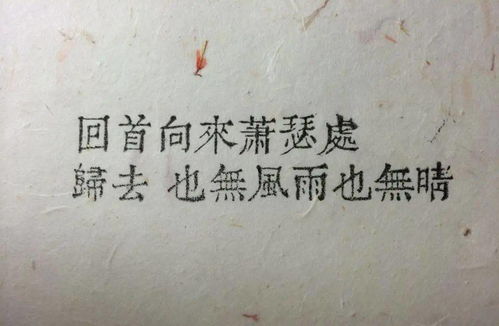 回首向來蕭瑟處
歸去 也無風雨也無晴